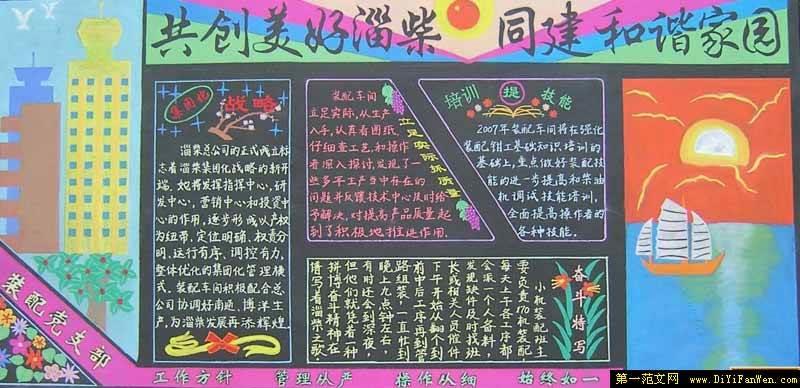 共创美好淄柴 同建和谐家园
集团化 战略
淄柴总公司的正式成立标
志着淄柴集团化战略的新开
端,她将发挥指挥中心,研
发中心,营销中心和投资中
心的作用,逐步形成以产权
为纽带,定位明确、权责分
明,运行有序、调控有力,
整体优化的集团化管理模
式。装配车间积极配合总
公司协调好南通、博洋生
产,为淄柴发展再添辉煌
立足实际抓质量
装配车间
立足实际,从生产
入手,认真看图纸,
仔细查工艺,和操作
者深入探讨,发现了一
些多年生产当中存在的
问题并反馈技术中心及时给
予解决,对提高产品质量起
到了积极地推进作用.
培训 提 技能
2007年装配车间将在强化
装配钳工基础知识培训的
基础上,重点做好装配技
能的进一步提高和柴油
机调试技能培训,
全面提高操作者的
各种技能。
奋斗特写
小机装配班主
要负责170机装配,
每天上午各工序都
会派一个人备料,
发现缺件及时找班
长或相关人员催件
下午开始
前中后工序再到管
路组装,一直忙到
晚上九点钟左右,
有时还会到深夜,
但他们就凭着一种
拼博奋斗精神在
谱写着淄柴之歌
装配党支部
工作方针 管理从严 操作从细 始终如一
第一范文网 www.DiYiFanWen.com